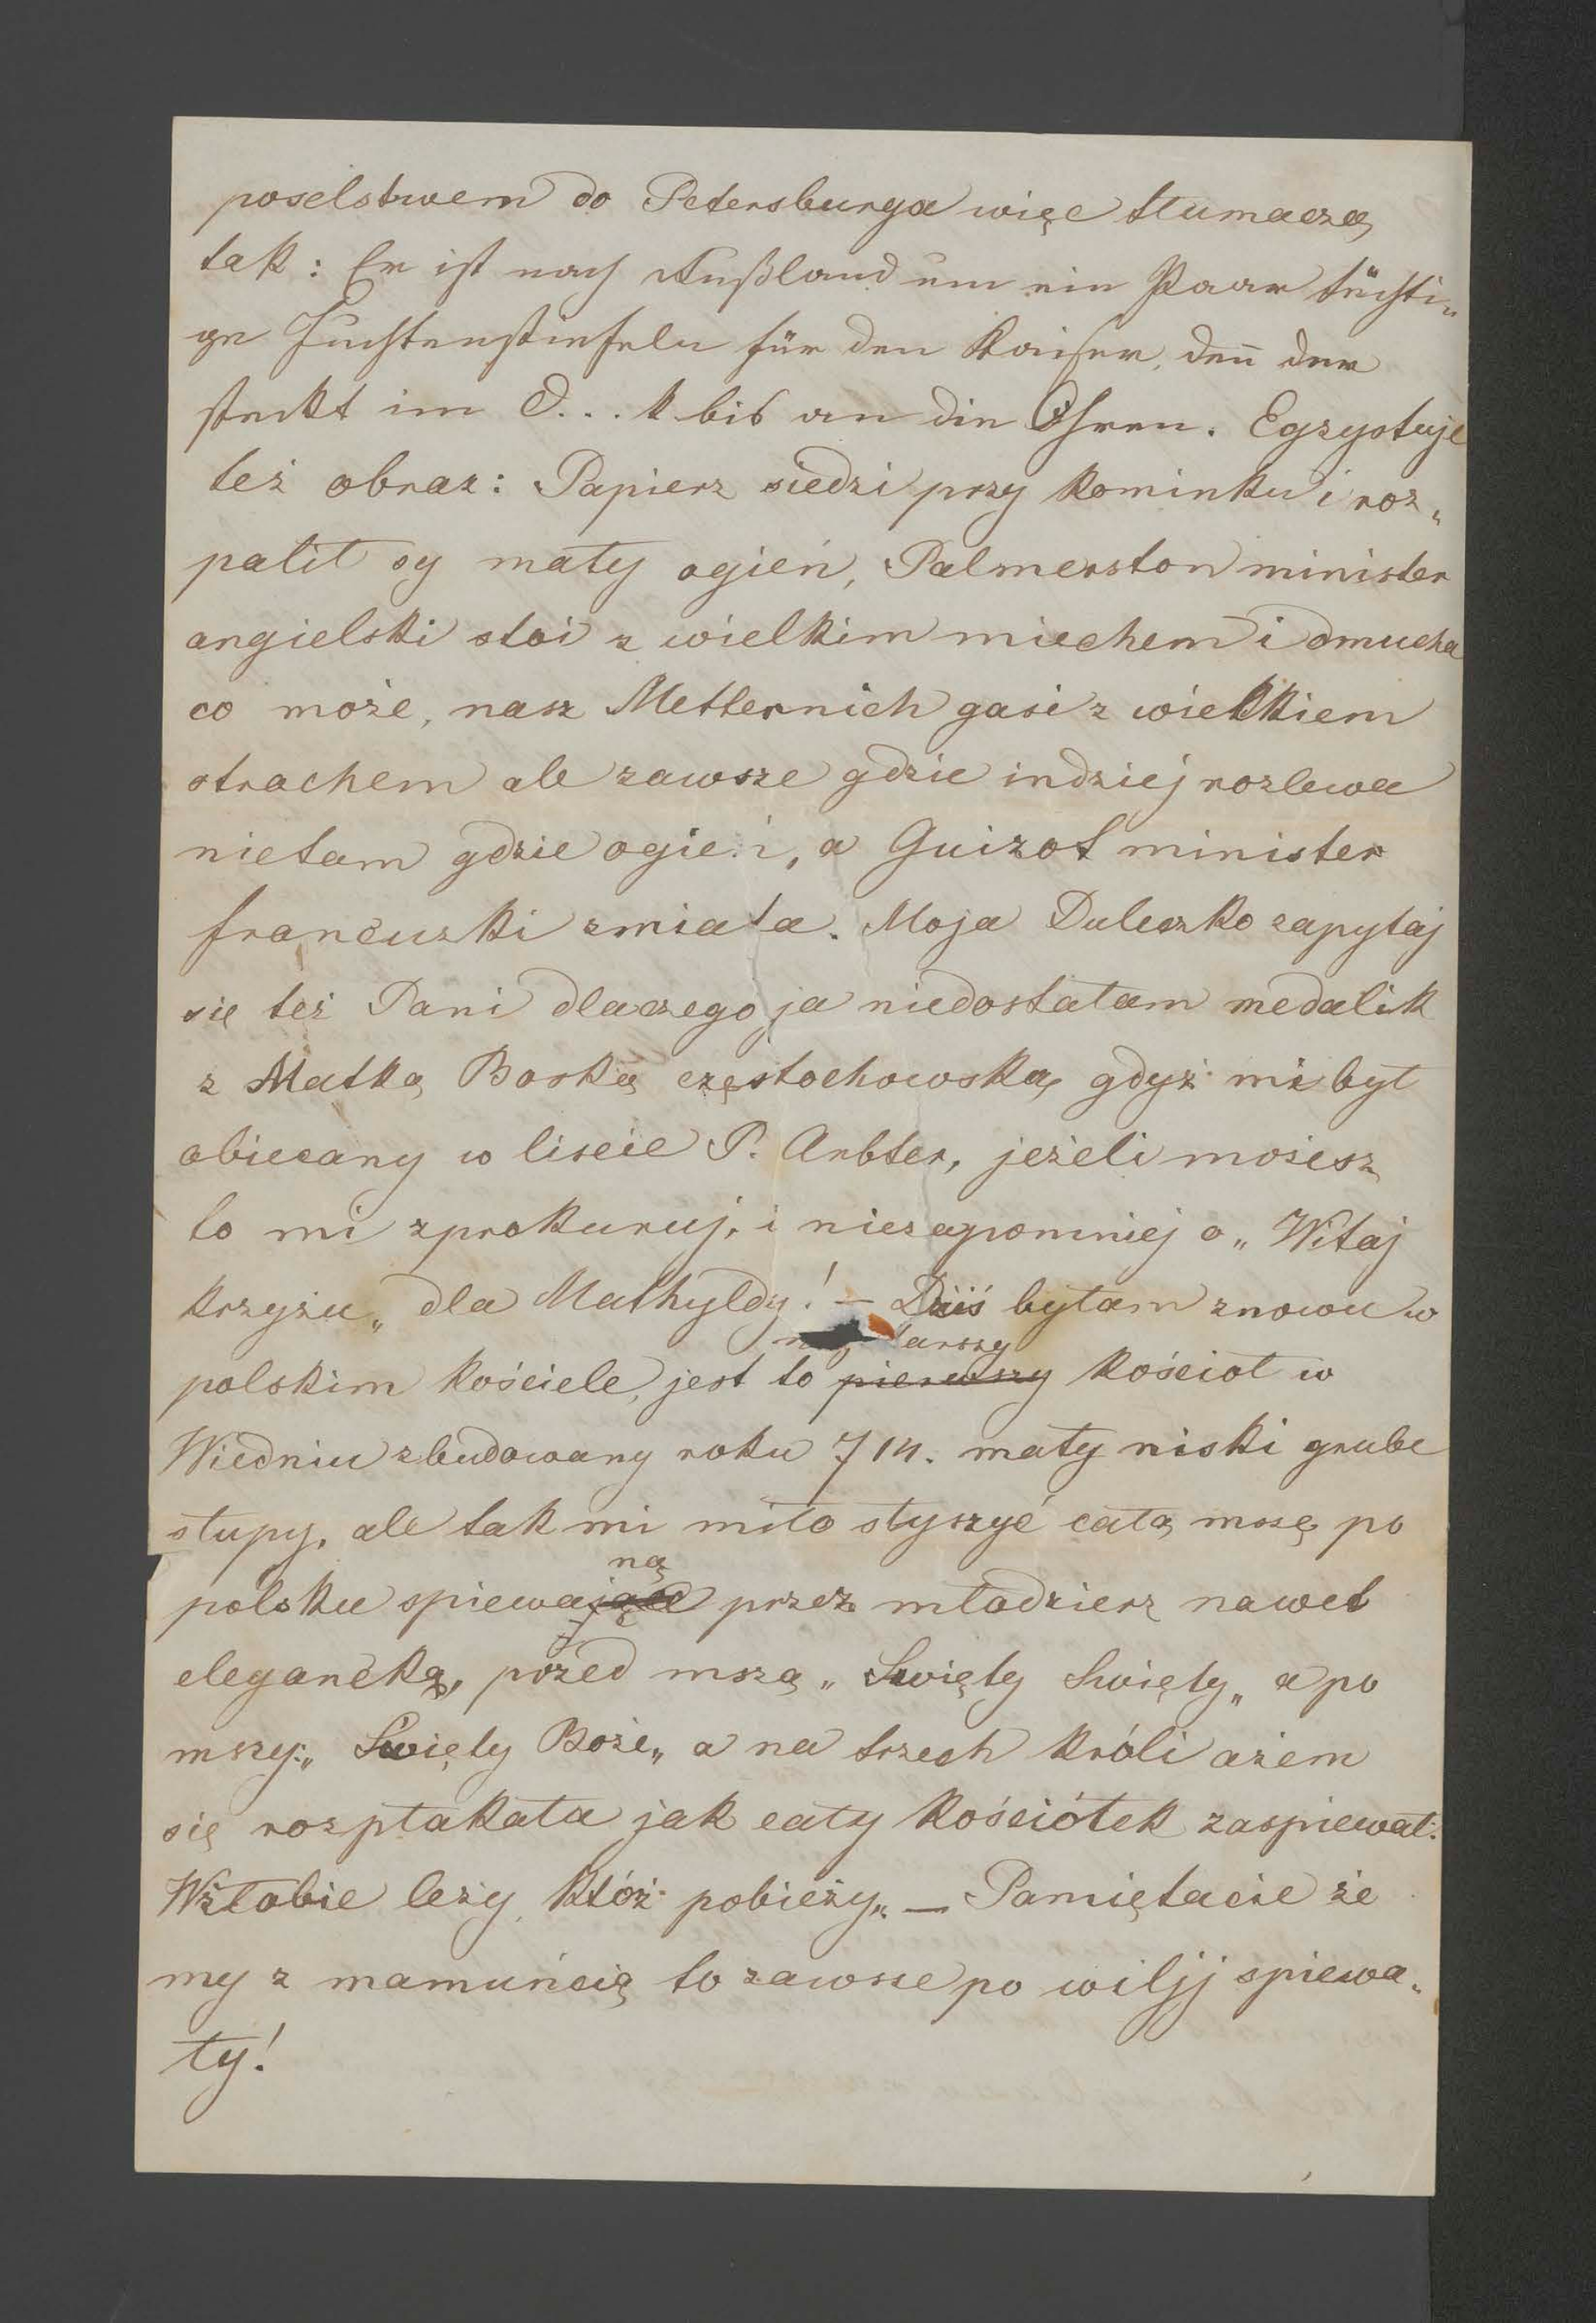 poselstwem do Petersburga więc tłumaczą
tak: Er ist nach Rußland um ein Paar tüchti„
ge Juchtenstiefeln für den Kaiser, den̄ der
steckt im D...k bis an die Ohren. Egzystuje
też obraz: Papierz siedzi przy kominku i roz„
palił sy mały ogień, Palmerston minister
angielski stoi z wielkim miechem i dmucha
co może, nasz Metternich gasi z wielkiem
strachem ale zawsze gdzie indziej rozlewa
nietam gdzie ogień, a Guizot minister
francuzki zmiata. Moja Duleczko zapytaj
się też Pani dlaczego ja niedostałam medalik
z Matką Boską częstochowską, gdyż mi był
obiecany w liscie P. Arbter, jeżeli możesz
to mi zprokuruj, i niezapomniej o „Witaj
krzyżu„ dla Mathyldy! – Dziś byłam znowu w
najstarszy
polskim kościele, jest to pierwszy kościoł w
Wiedniu zbudowany roku 714. mały niski grube
słupy, ale tak mi miło słyszyć całą mszę po
ną
polsku spiewające przez młodzierz nawet
elegancką, przed mszą „Swięty Swięty„ a po
mszy: „Swięty Boże„ a na trzech króli ażem
się rozpłakała jak cały kościółek zaspiewał:
Wżłobie leży, któż pobieży„ – Pamiętacie że
my z mamuńcią to zawsze po wiljj spiewa„
ły!